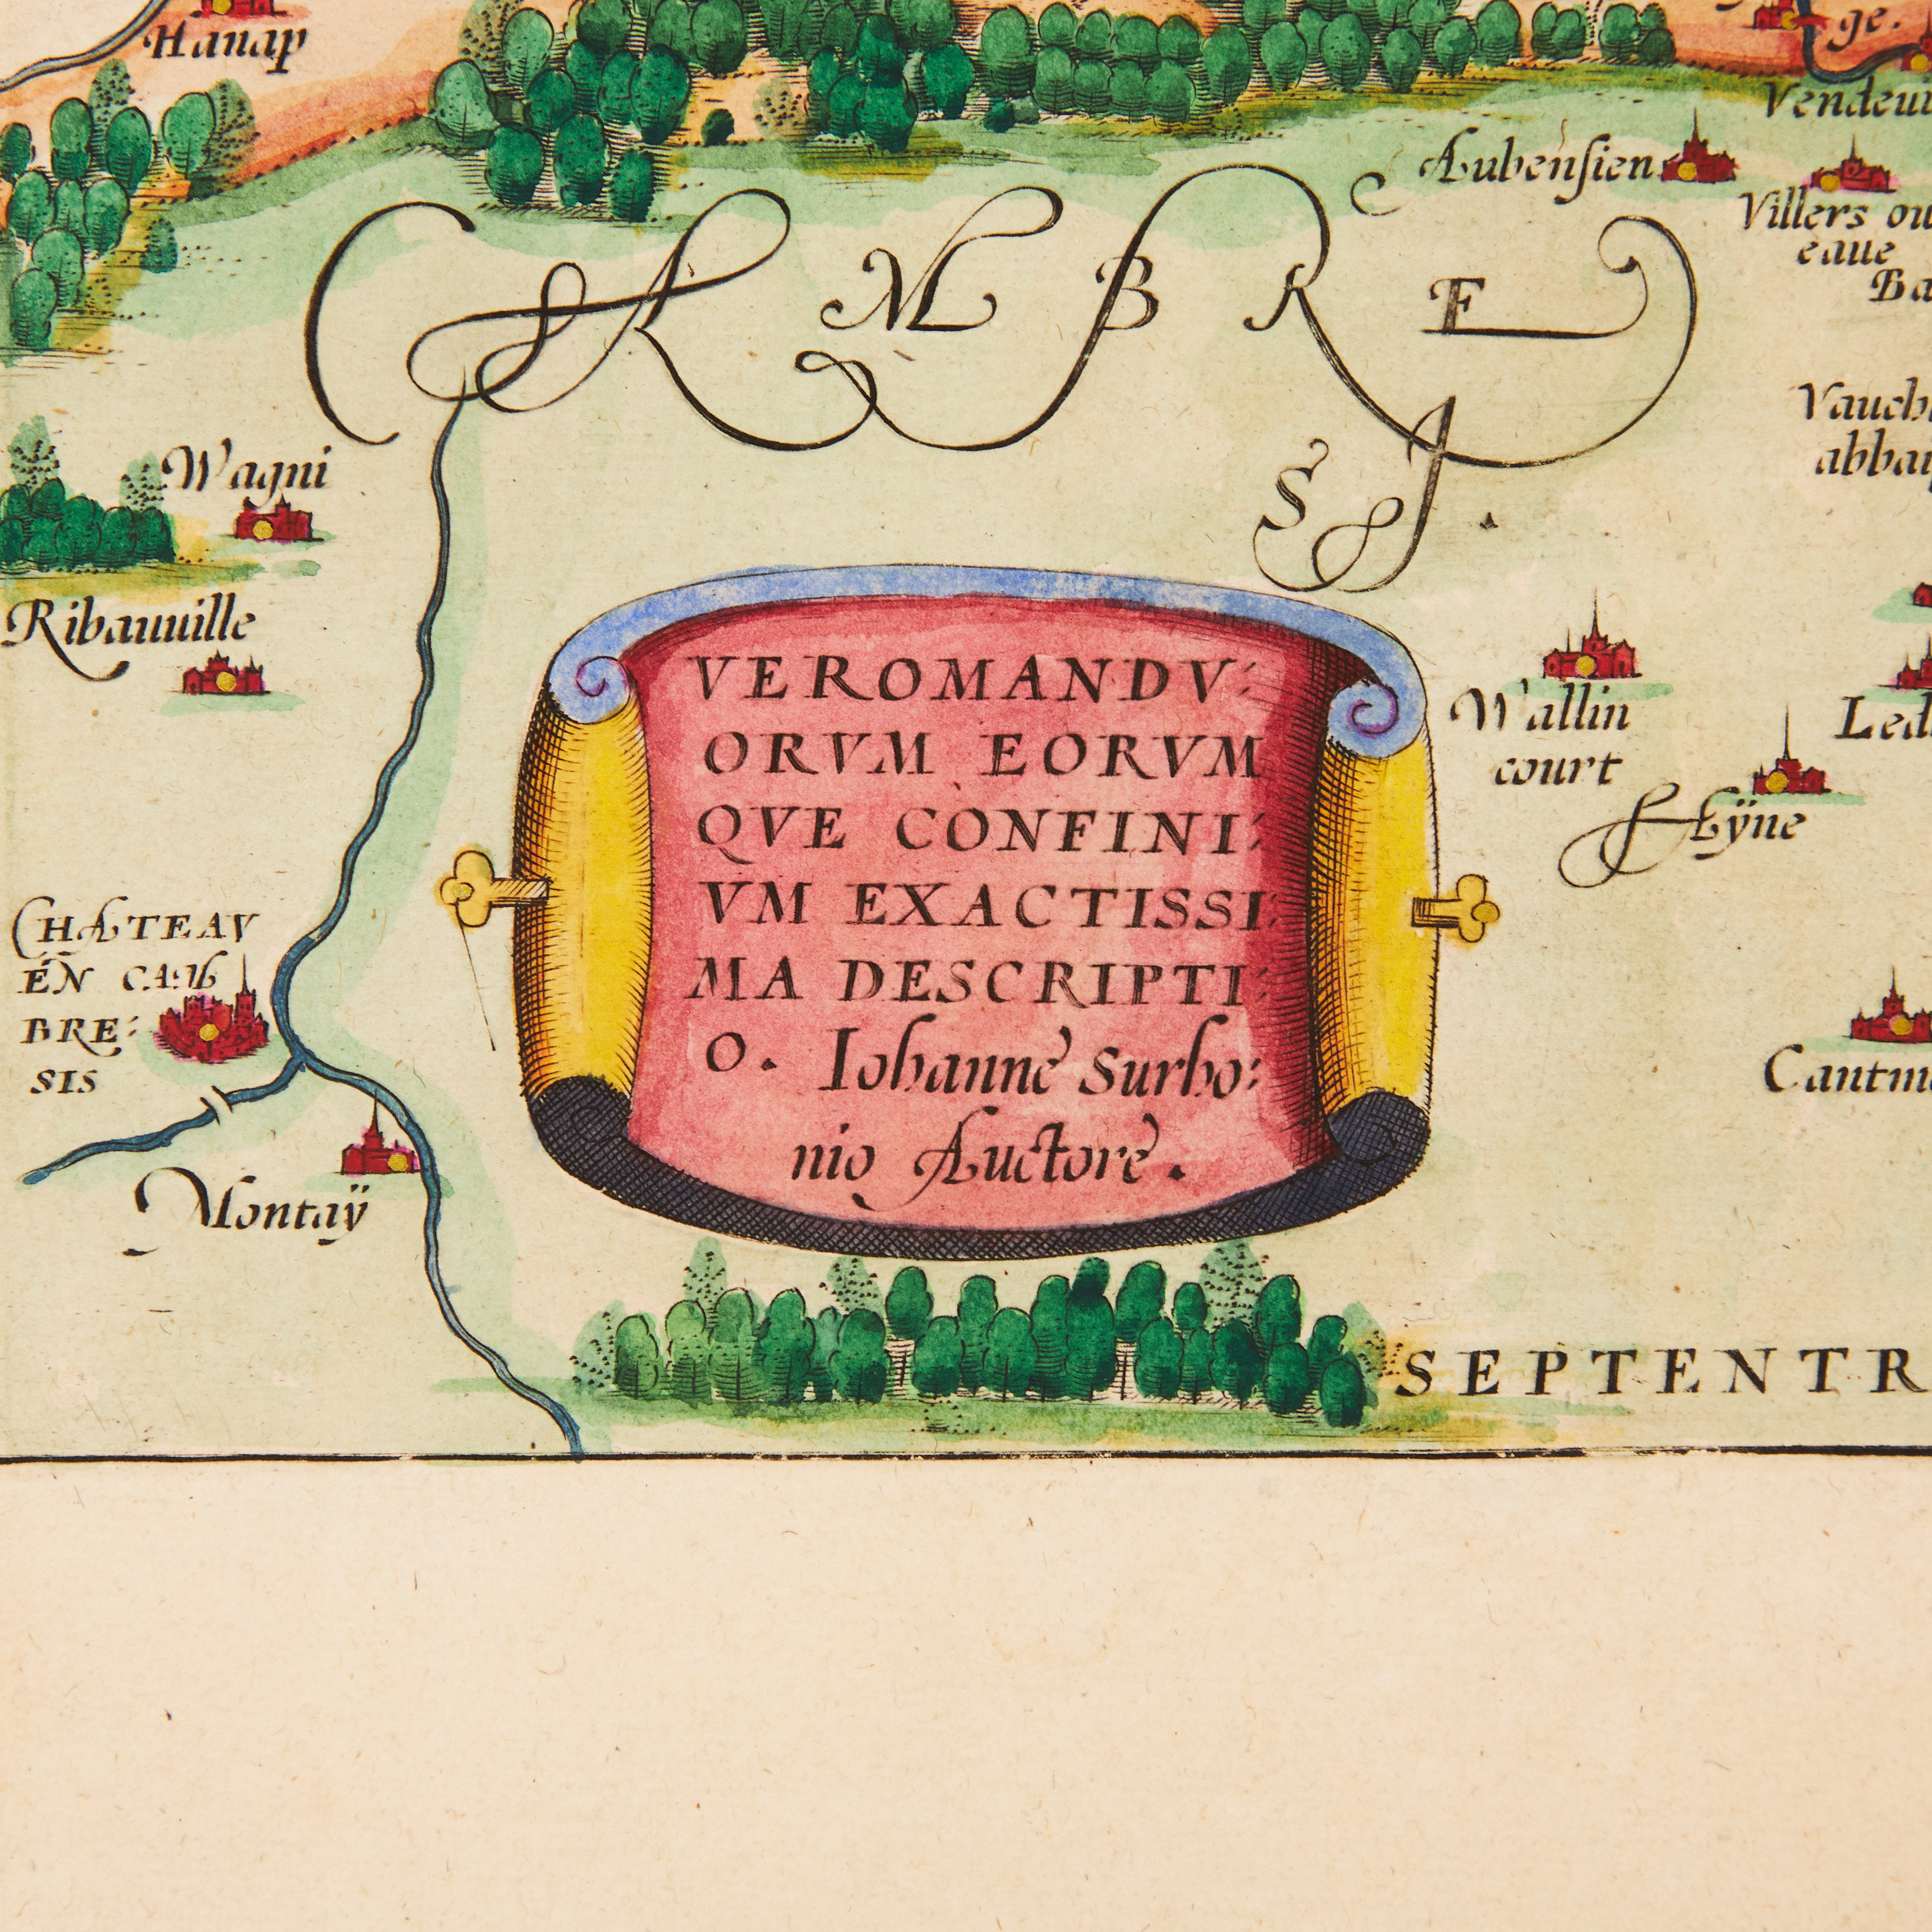 Hanap
ge.
Aubensien
Villers ou
eaue
CAMBRE
SJ.
Wagni
abbay
Ribauuille
VEROMANDV:
ORVM EORVM
QVE CONFINI:
VM EXACTISSI:
MA DESCRIPTI:
O. Iohanne Surho:
nio Auctore.
Wallin
court
Elÿne
CHATEAV
EN CAMB
BRE:
SIS
Montaÿ
SEPTENTR